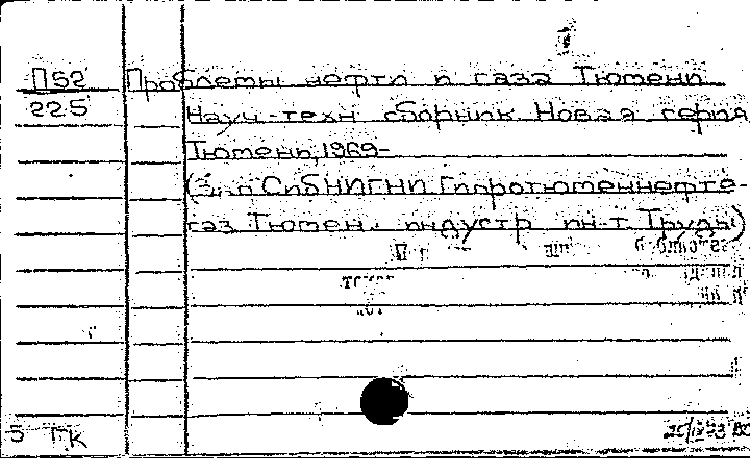 П52 Проблемы нефти и газа Тюмени
225 Науч.-техн. сборник Новая серия
Тюмень, 1969-
СибНИГНИ Гипротюменнефте-
газ Тюмен. индустр. ин-т Труды)
5 ГК